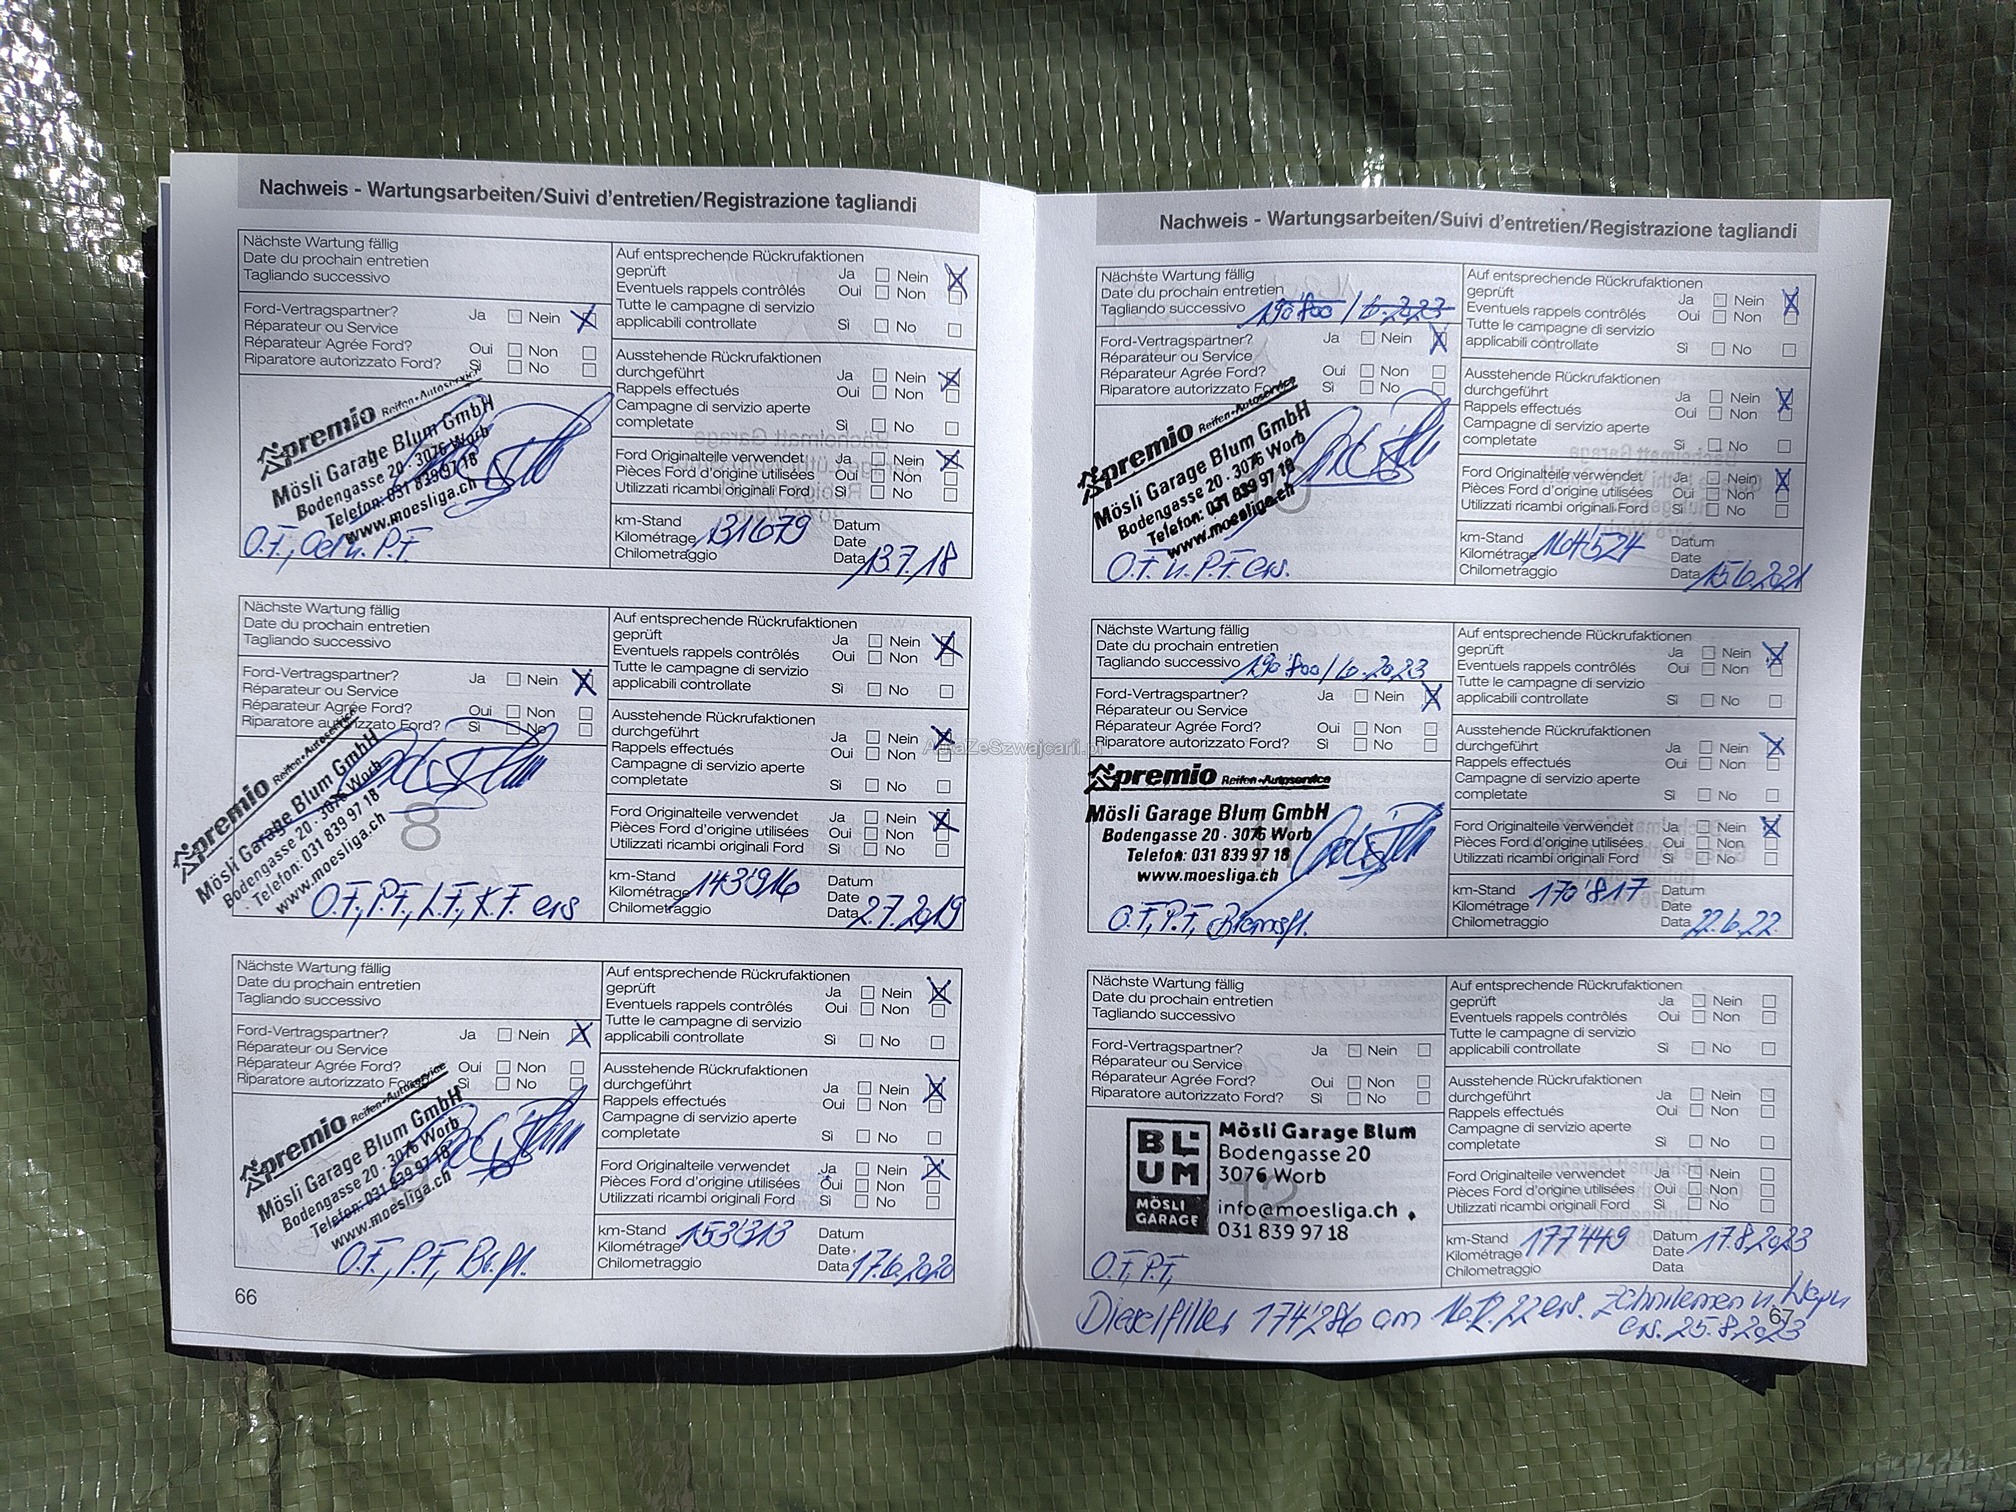 Nachweis - Wartungsarbeiten/Suivi d'entretien/Registrazione tagliandi
Nächste Wartung fällig
Date du prochain entretien
Tagliando successivo
Ford-Vertragspartner? Ja Nein
Réparateur ou Service
Réparateur Agrée Ford? Oui Non
Riparatore autorizzato Ford? Sì No
premio Reifen+Autoservice
Mösli Garage Blum GmbH
Bodengasse 20 · 3076 Worb
Telefon: 031 839 97 18
www.moesliga.ch
O.F., P.F.
Auf entsprechende Rückrufaktionen
geprüft Ja Nein
Eventuels rappels contrôlés Oui Non
Tutte le campagne di servizio
applicabili controllate Sì No
Ausstehende Rückrufaktionen
durchgeführt Ja Nein
Rappels effectués Oui Non
Campagne di servizio aperte
completate Sì No
Ford Originalteile verwendet Ja Nein
Pièces Ford d'origine utilisées Oui Non
Utilizzati ricambi originali Ford Sì No
km-Stand
Kilométrage 131679
Chilometraggio
Datum
Date
Data 13.7.18
Nächste Wartung fällig
Date du prochain entretien
Tagliando successivo
Ford-Vertragspartner? Ja Nein
Réparateur ou Service
Réparateur Agrée Ford? Oui Non
Riparatore autorizzato Ford? Sì No
premio Reifen+Autoservice
Mösli Garage Blum GmbH
Bodengasse 20 · 3076 Worb
Telefon: 031 839 97 18
www.moesliga.ch
8
O.F., P.F., I.F., K.F. ers
Auf entsprechende Rückrufaktionen
geprüft Ja Nein
Eventuels rappels contrôlés Oui Non
Tutte le campagne di servizio
applicabili controllate Sì No
Ausstehende Rückrufaktionen
durchgeführt Ja Nein
Rappels effectués Oui Non
Campagne di servizio aperte
completate Sì No
Ford Originalteile verwendet Ja Nein
Pièces Ford d'origine utilisées Oui Non
Utilizzati ricambi originali Ford Sì No
km-Stand
Kilométrage 143'916
Chilometraggio
Datum
Date
Data 2.7.2019
Nächste Wartung fällig
Date du prochain entretien
Tagliando successivo
Ford-Vertragspartner? Ja Nein
Réparateur ou Service
Réparateur Agrée Ford? Oui Non
Riparatore autorizzato Ford? Sì No
premio Reifen+Autoservice
Mösli Garage Blum GmbH
Bodengasse 20 · 3076 Worb
Telefon: 031 839 97 18
www.moesliga.ch
O.F., P.F., Br.fl.
Auf entsprechende Rückrufaktionen
geprüft Ja Nein
Eventuels rappels contrôlés Oui Non
Tutte le campagne di servizio
applicabili controllate Sì No
Ausstehende Rückrufaktionen
durchgeführt Ja Nein
Rappels effectués Oui Non
Campagne di servizio aperte
completate Sì No
Ford Originalteile verwendet Ja Nein
Pièces Ford d'origine utilisées Oui Non
Utilizzati ricambi originali Ford Sì No
km-Stand
Kilométrage 153'313
Chilometraggio
Datum
Date
Data 17.6.2020
66
Nachweis - Wartungsarbeiten/Suivi d'entretien/Registrazione tagliandi
Nächste Wartung fällig
Date du prochain entretien
Tagliando successivo 190'800 / 6.2023
Ford-Vertragspartner? Ja Nein
Réparateur ou Service
Réparateur Agrée Ford? Oui Non
Riparatore autorizzato Ford? Sì No
premio Reifen+Autoservice
Mösli Garage Blum GmbH
Bodengasse 20 · 3076 Worb
Telefon: 031 839 97 18
www.moesliga.ch
O.F. u. P.F. ers.
Auf entsprechende Rückrufaktionen
geprüft Ja Nein
Eventuels rappels contrôlés Oui Non
Tutte le campagne di servizio
applicabili controllate Sì No
Ausstehende Rückrufaktionen
durchgeführt Ja Nein
Rappels effectués Oui Non
Campagne di servizio aperte
completate Sì No
Ford Originalteile verwendet Ja Nein
Pièces Ford d'origine utilisées Oui Non
Utilizzati ricambi originali Ford Sì No
km-Stand
Kilométrage 164'524
Chilometraggio
Datum
Date
Data 15.6.2021
Nächste Wartung fällig
Date du prochain entretien
Tagliando successivo 190'800 / 6.2023
Ford-Vertragspartner? Ja Nein
Réparateur ou Service
Réparateur Agrée Ford? Oui Non
Riparatore autorizzato Ford? Sì No
premio Reifen+Autoservice
Mösli Garage Blum GmbH
Bodengasse 20 · 3076 Worb
Telefon: 031 839 97 18
www.moesliga.ch
O.F., P.F., Bremsfl.
Auf entsprechende Rückrufaktionen
geprüft Ja Nein
Eventuels rappels contrôlés Oui Non
Tutte le campagne di servizio
applicabili controllate Sì No
Ausstehende Rückrufaktionen
durchgeführt Ja Nein
Rappels effectués Oui Non
Campagne di servizio aperte
completate Sì No
Ford Originalteile verwendet Ja Nein
Pièces Ford d'origine utilisées Oui Non
Utilizzati ricambi originali Ford Sì No
km-Stand
Kilométrage 170'817
Chilometraggio
Datum
Date
Data 22.6.22
Nächste Wartung fällig
Date du prochain entretien
Tagliando successivo
Ford-Vertragspartner? Ja Nein
Réparateur ou Service
Réparateur Agrée Ford? Oui Non
Riparatore autorizzato Ford? Sì No
BLUM
MÖSLI
GARAGE
Mösli Garage Blum
Bodengasse 20
3076 Worb
info@moesliga.ch
031 839 97 18
12
O.F., P.F.,
Auf entsprechende Rückrufaktionen
geprüft Ja Nein
Eventuels rappels contrôlés Oui Non
Tutte le campagne di servizio
applicabili controllate Sì No
Ausstehende Rückrufaktionen
durchgeführt Ja Nein
Rappels effectués Oui Non
Campagne di servizio aperte
completate Sì No
Ford Originalteile verwendet Ja Nein
Pièces Ford d'origine utilisées Oui Non
Utilizzati ricambi originali Ford Sì No
km-Stand
Kilométrage 177'449
Chilometraggio
Datum 17.8.2023
Date
Data
Dieselfilter 174'286 am 16.12.22 ers. Zahnriemen u. Wapu
ers. 25.8.2023
67
AutaZeSzwajcarii.pl